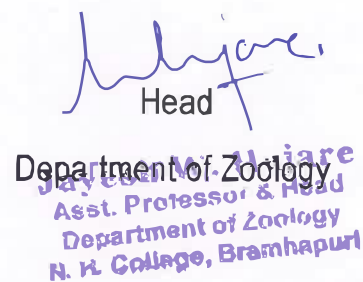 Head
Depa tment of Zoology
Jayesh W. Hajare
Asst. Professor & Head
Department of Zoology
N. H. College, Bramhapuri